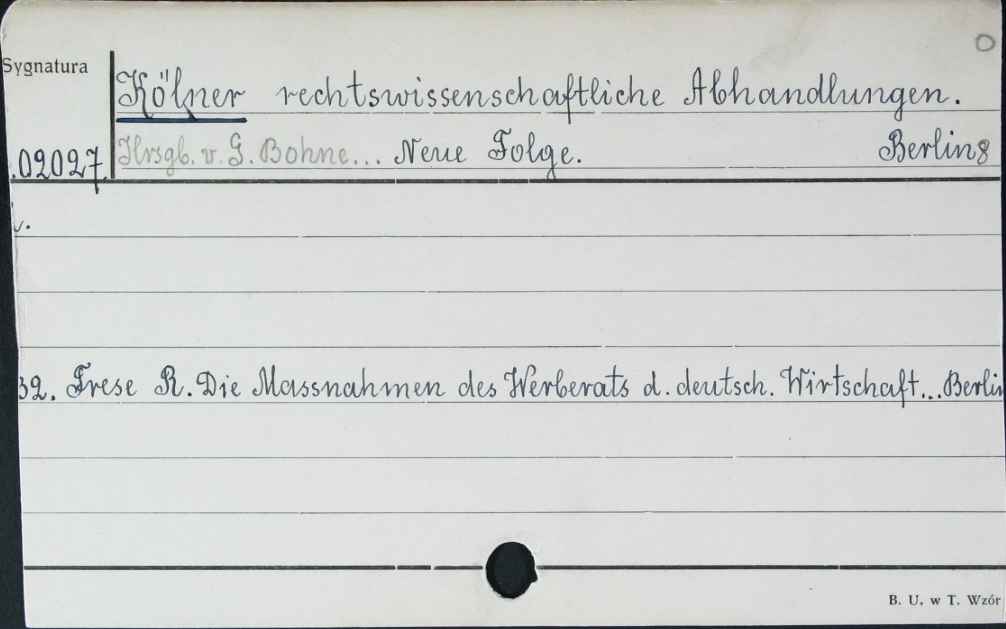 Sygnatura
Kölner rechtswissenschaftliche Abhandlungen.
.02027 Hrsgb. v. G. Bohne... Neue Folge. Berlin 8
32. Frese R. Die Massnahmen des Werberats d. deutsch. Wirtschaft... Berlin
B. U. w T. Wzór